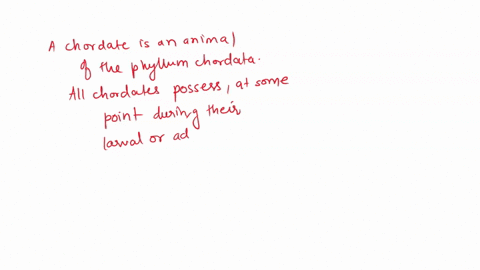 A chordate is an animal
of the phyllum chordata.
All chordates possess, at some
point during their
larval or ad